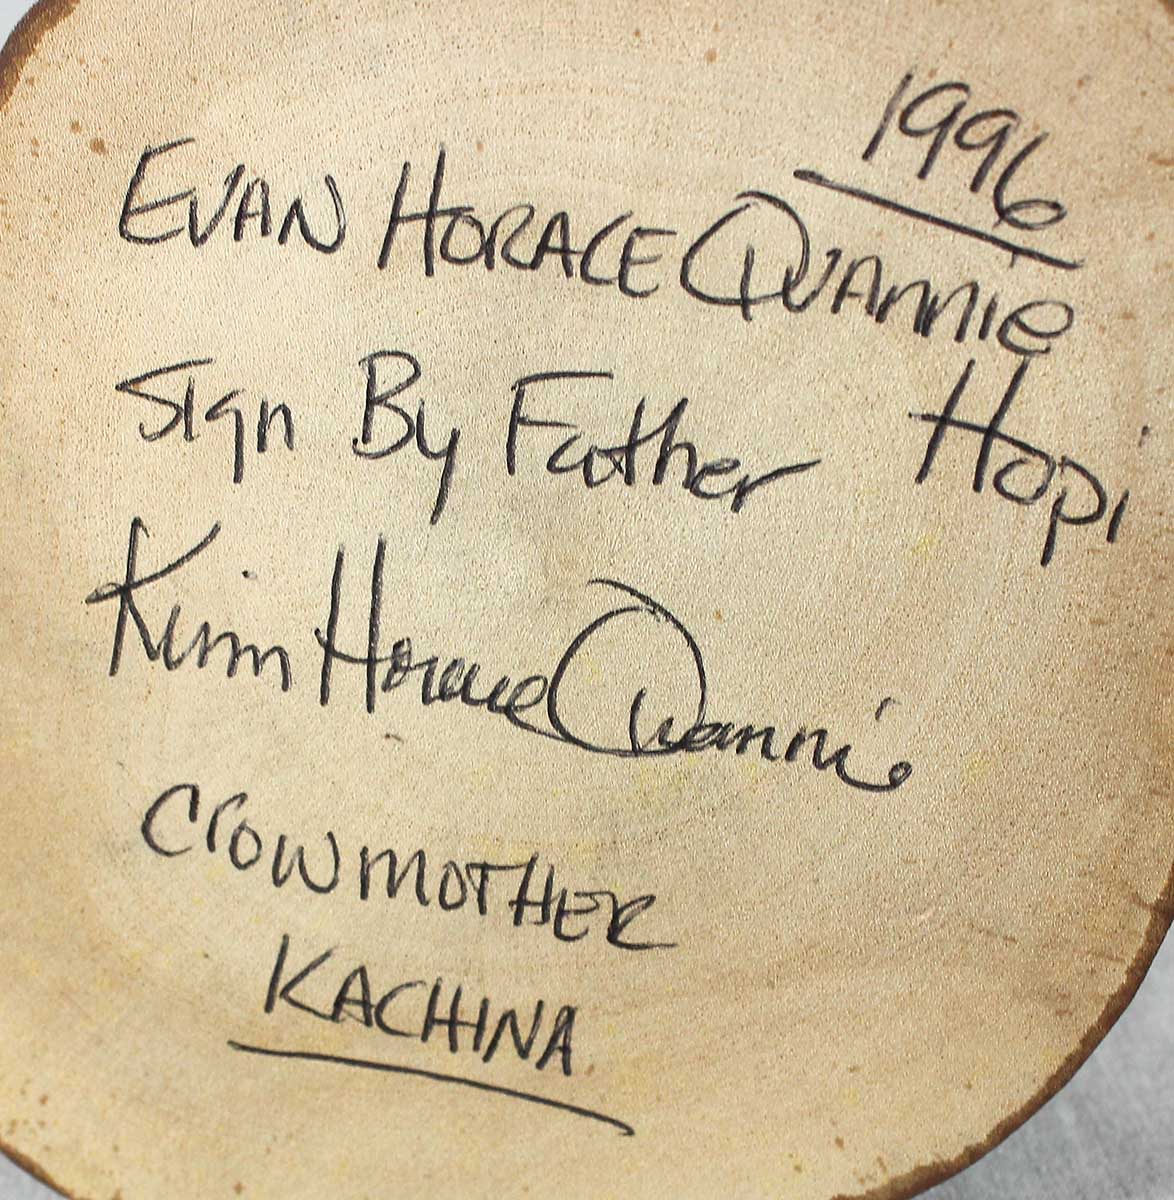 1996
EVAN HORACE QUANNIE
Sign By Father Hopi
Kevin Horace Quannie
CROW MOTHER
KACHINA